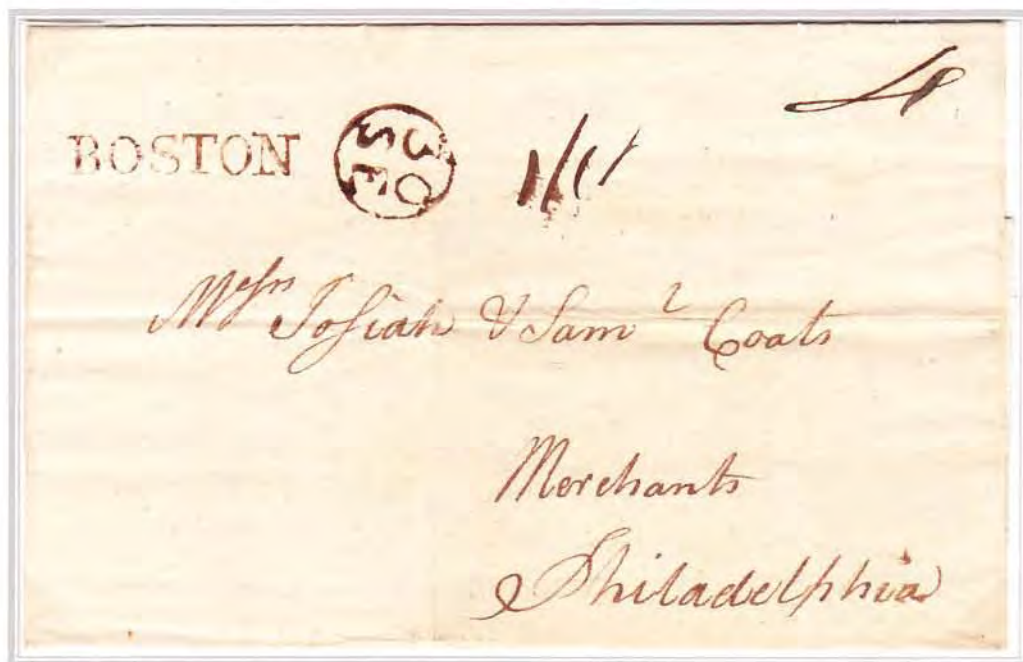 4
BOSTON
30
SE
Messrs Josiah & Saml Coats
Merchants
Philadelphia